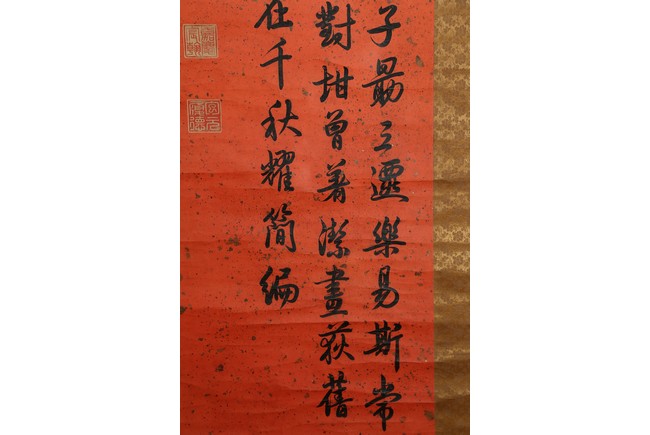 子勗三遷樂易斯常
對坩曾著潔畫荻舊
在千秋耀簡編